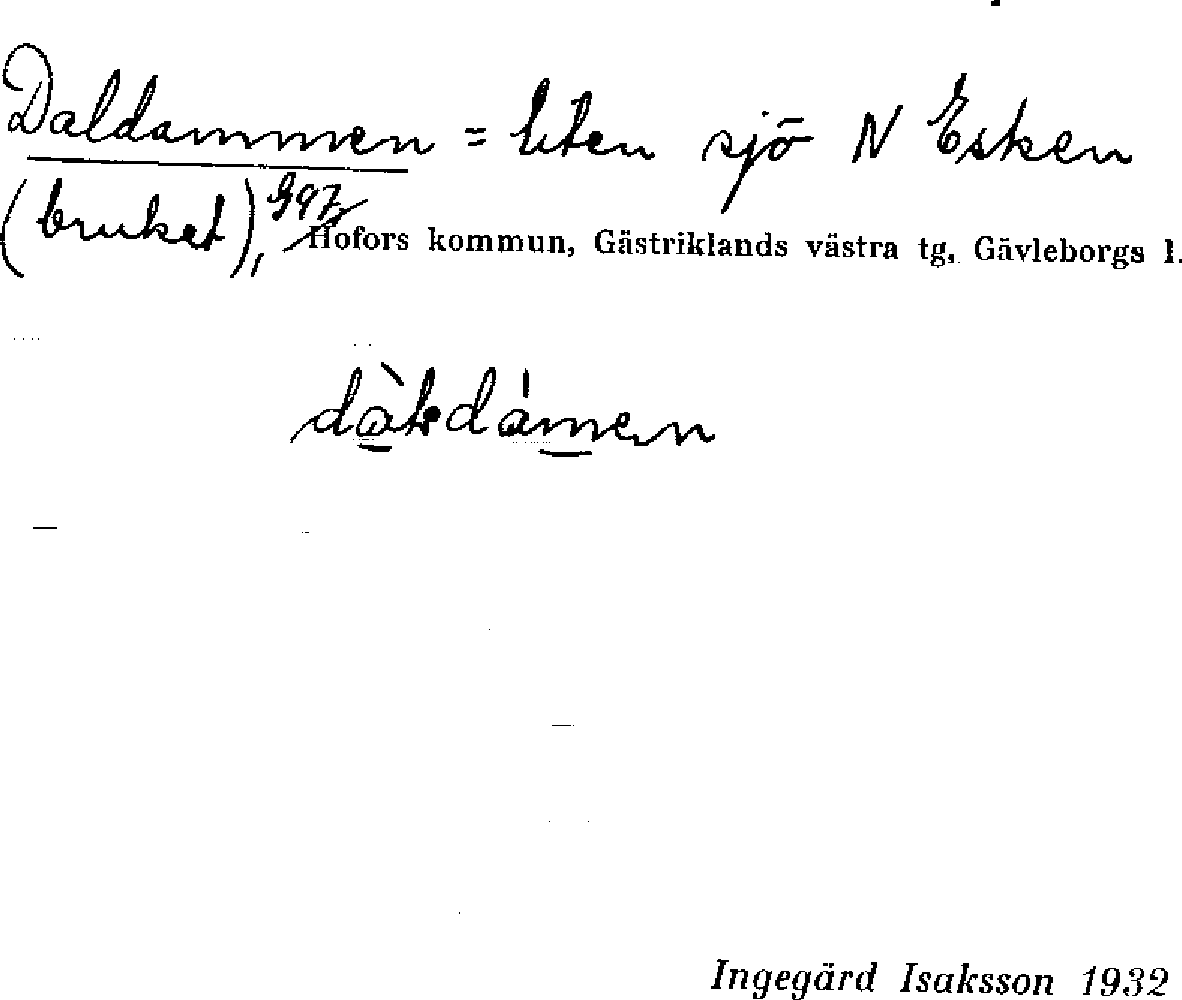 Daldammen = liten sjö N Esken
(bruket), Hofors kommun, Gästriklands västra tg, Gävleborgs l.
Ingegärd Isaksson 1932